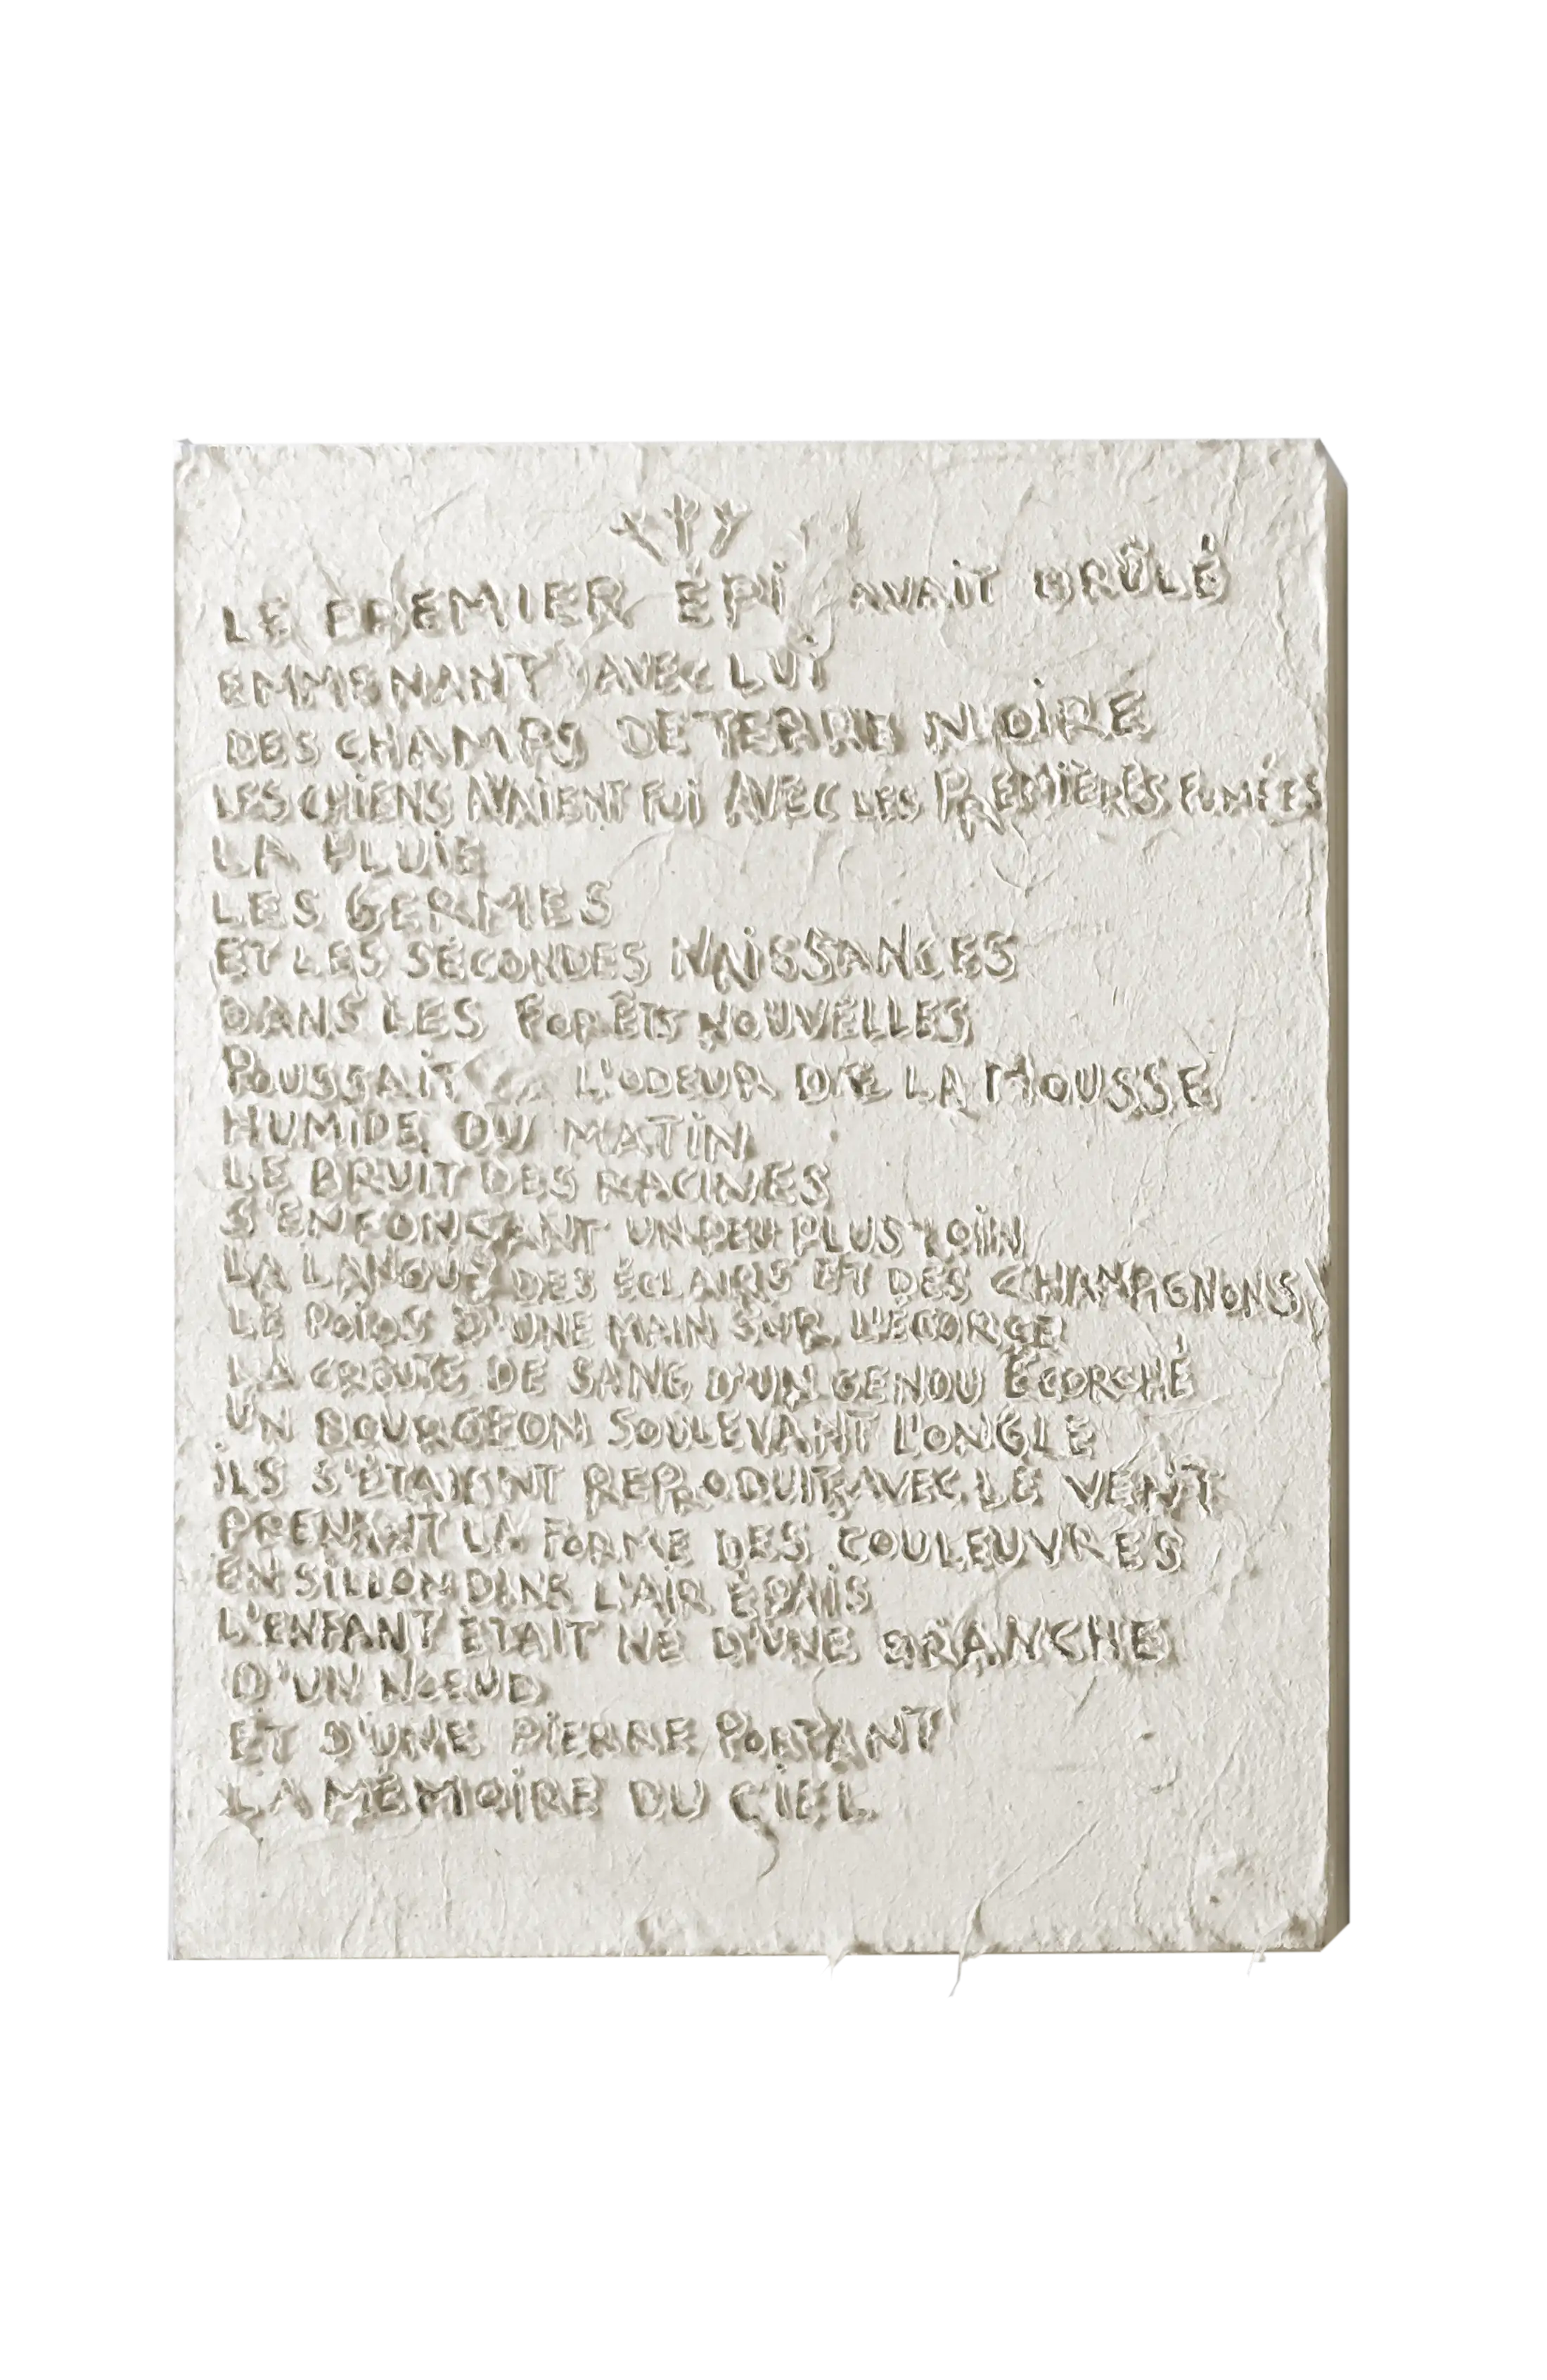 LE PREMIER ÉPI AVAIT BRÛLÉ
EMMENANT AVEC LUI
DES CHAMPS DE TERRE NOIRE
LES CHIENS AVAIENT FUI AVEC LES PREMIÈRES FUMÉES
LA PLUIE
LES GERMES
ET LES SECONDES NAISSANCES
DANS LES FORÊTS NOUVELLES
POUSSAIT L'ODEUR DE LA MOUSSE
HUMIDE DU MATIN
LE BRUIT DES RACINES
S'ENFONÇANT UN PEU PLUS LOIN
LA LANGUE DES ÉCLAIRS ET DES CHAMPIGNONS
LE POIDS D'UNE MAIN SUR L'ÉCORCE
LA CROUTE DE SANG D'UN GENOU ÉCORCHÉ
UN BOURGEON SOULEVANT L'ONGLE
ILS S'ÉTAIENT REPRODUITS AVEC LE VENT
PRENANT LA FORME DES COULEUVRES
EN SILLON DANS L'AIR ÉPAIS
L'ENFANT ÉTAIT NÉ D'UNE BRANCHE
D'UN NOEUD
ET D'UNE PIERRE PORTANT
LA MÉMOIRE DU CIEL